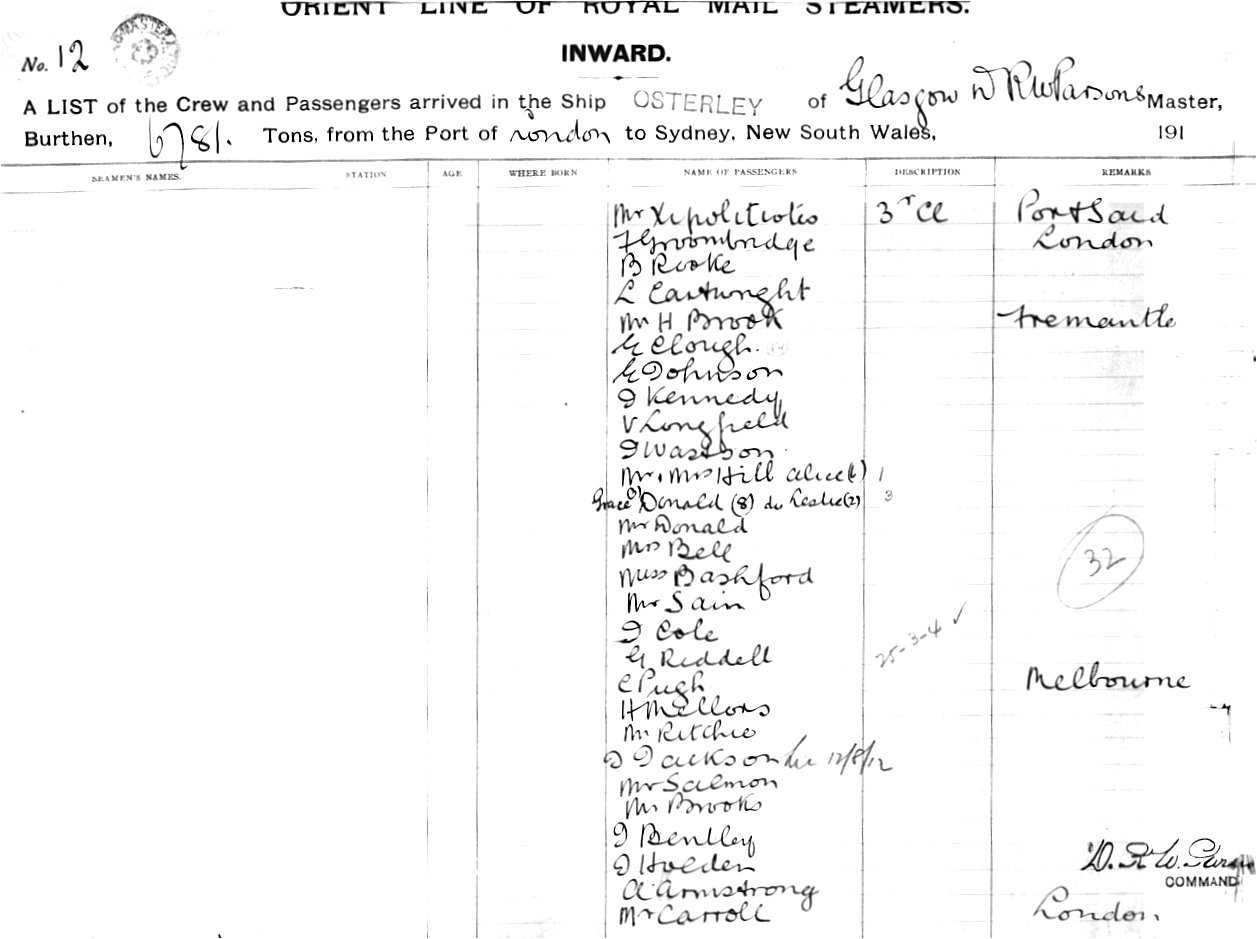 ORIENT LINE OF ROYAL MAIL STEAMERS.
No. 12
INWARD.
A LIST of the Crew and Passengers arrived in the Ship OSTERLEY of Glasgow D R W Parsons Master,
Burthen, 6781. Tons, from the Port of London to Sydney, New South Wales, 191
SEAMEN'S NAMES. STATION AGE WHERE BORN NAME OF PASSENGERS DESCRIPTION REMARKS
Mr 3r Cl Port Said
F Groombridge London
B Rooke
L Cartwright
Mr H Brook Fremantle
G Clough.
G Johnson
J Kennedy
V Longfield
J Wasson
Mr. Mrs Hill Alice 1
Grace Donald (8) do Leslie (2) 3
Mr Donald
Mrs Bell
Miss Bashford
Mr Sain
32
J Cole
25-3-4 ✓
G Riddell
C Pugh Melbourne
H Mellors
Mr Ritchie
D Jackson 12/8/12
Mr Salmon
Mr Brooks
J Bentley
J Holden D. R. W.
COMMAND
A Armstrong
Mr Carroll London